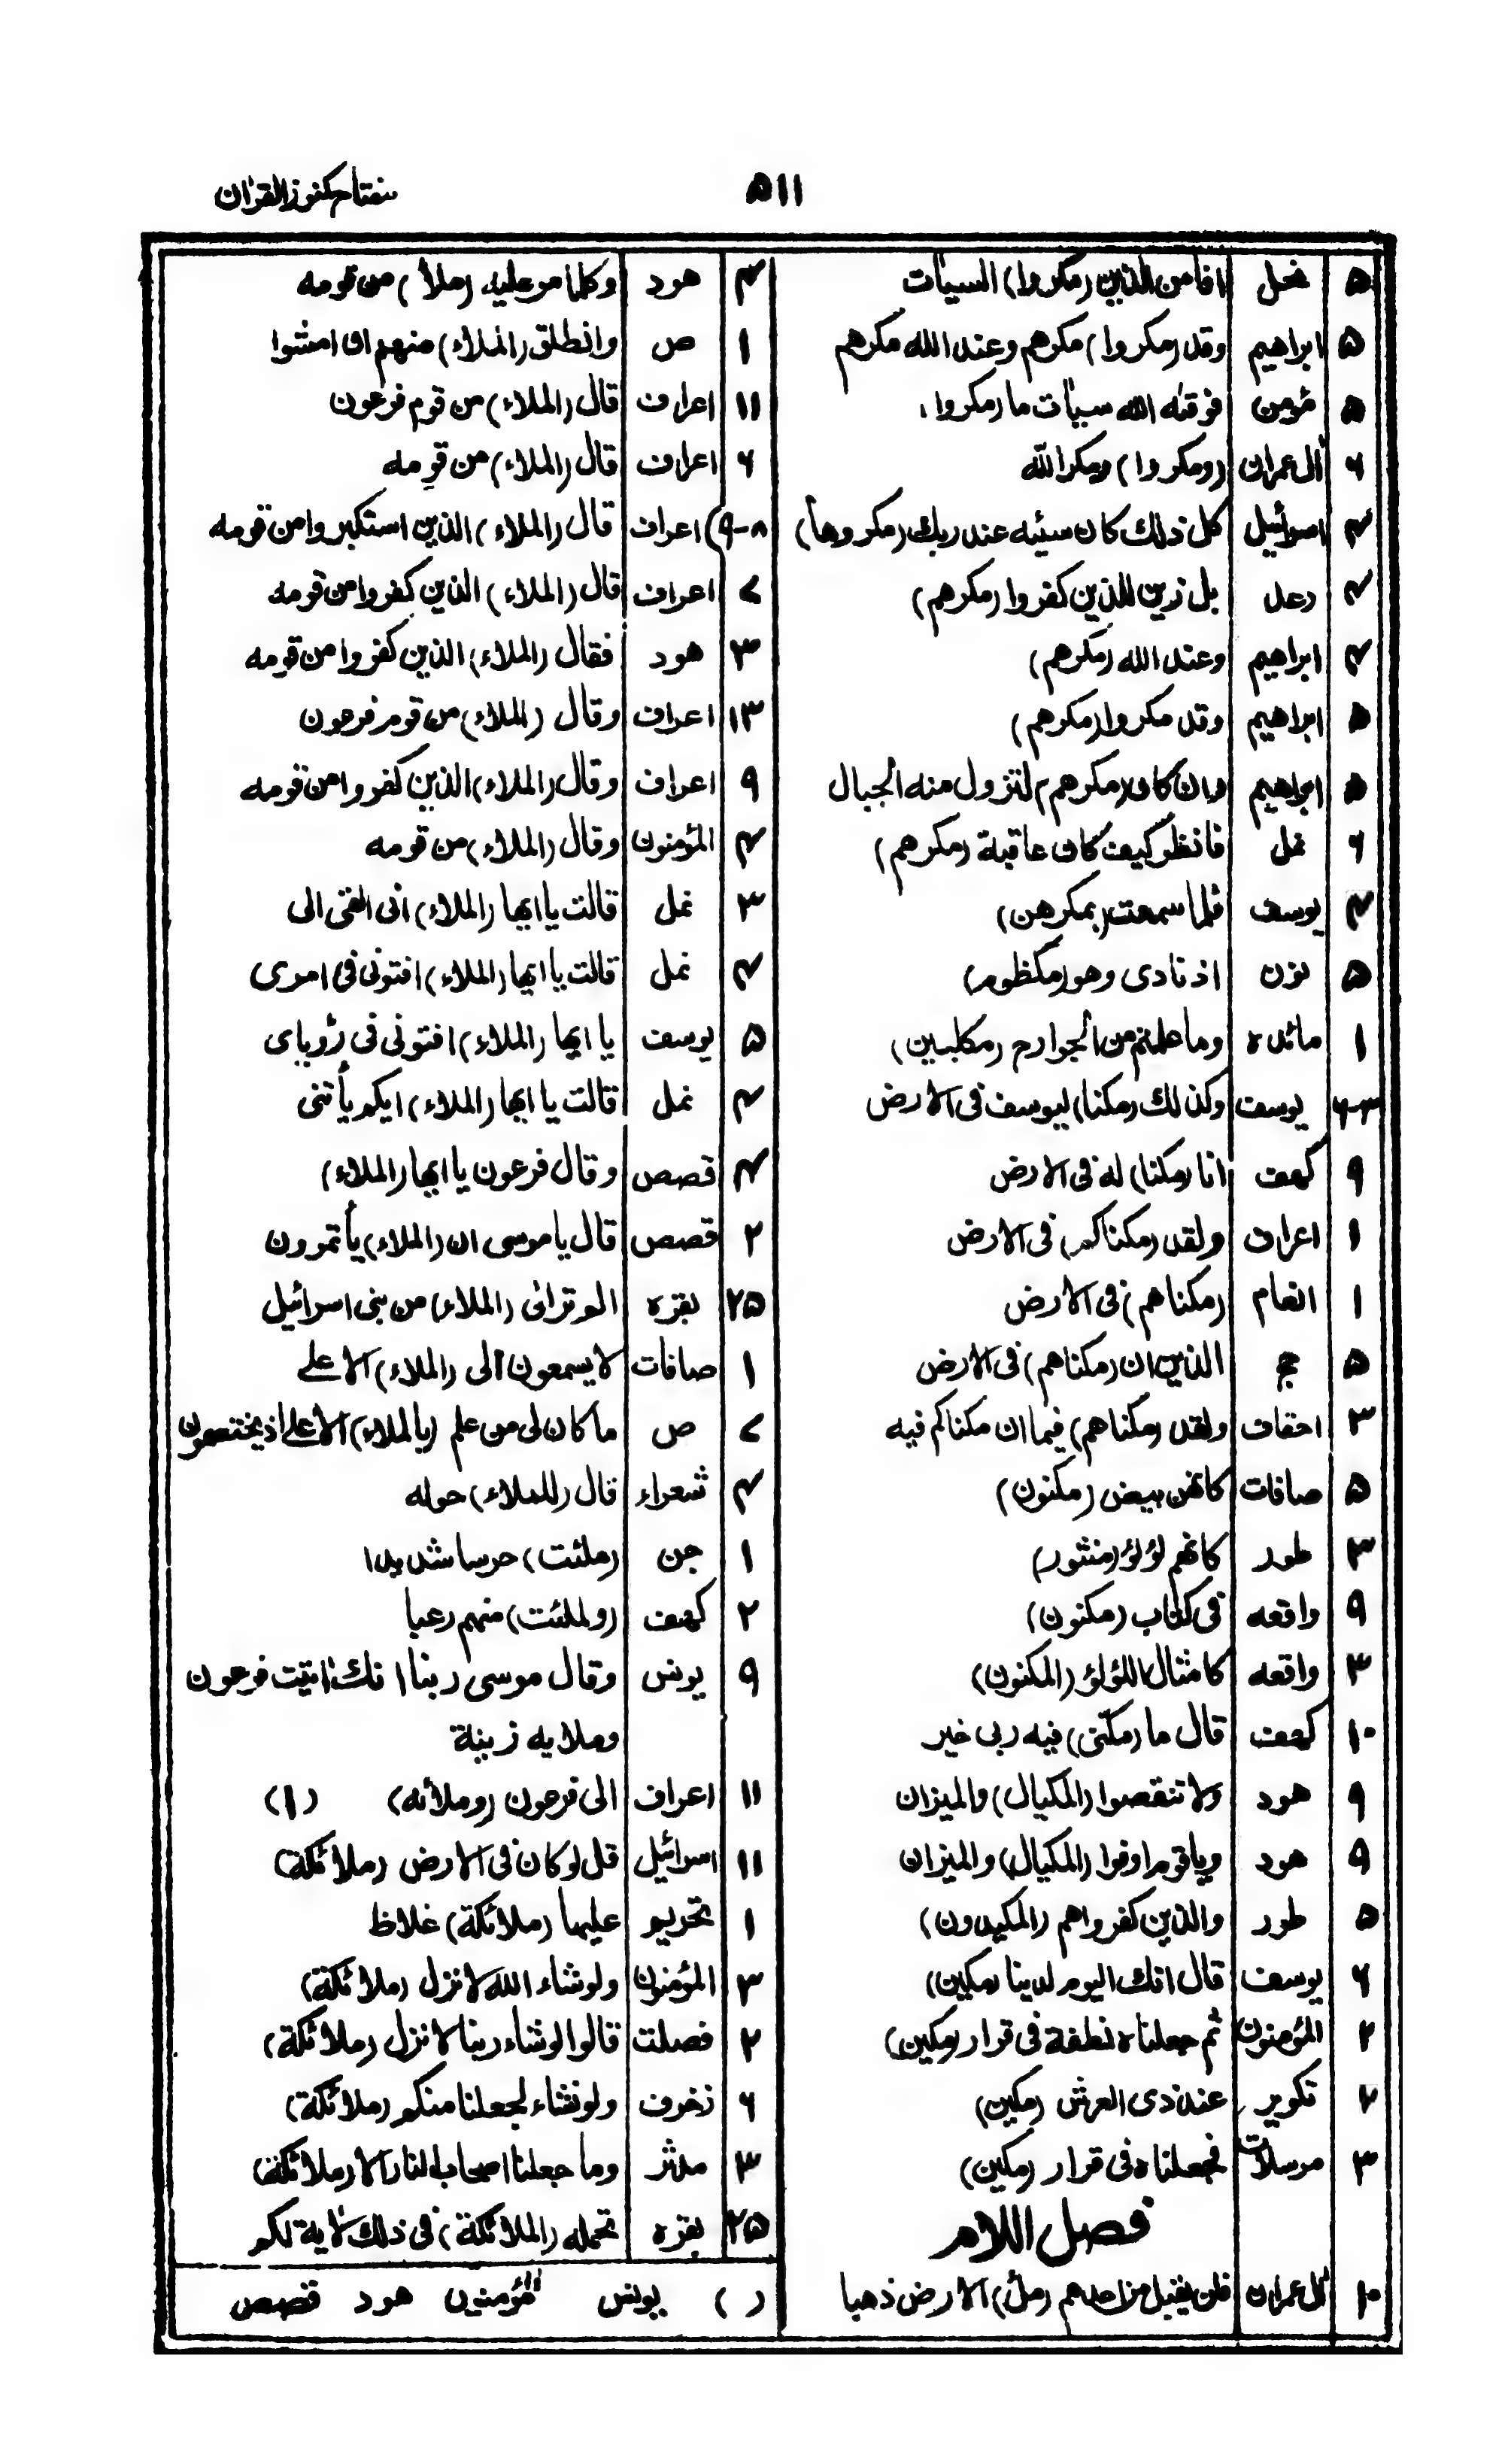 ۵۱۱
مفتاح كنوز القرٰان
۵ نحل افامن الذين (مكروا) السيئات
۵ ابراهيم وقد (مكروا) مكرهم وعند الله مكرهم
۵ مؤمن فوقٰه الله سيئات ما (مكروا)
۶ اٰل عمران (ومكروا) ومكر الله
۴ اسرائيل كل ذلك كان سيئه عند ربك (مكروهاً)
۴ رعد بل زين للذين كفروا (مكرهم)
۴ ابراهيم وعند الله (مكرهم)
۵ ابراهيم وقد مكروا (مكرهم)
۵ ابراهيم وان كان (مكرهم) لتزول منه الجبال
۶ نمل فانظر كيف كان عاقبة (مكرهم)
۴ يوسف فلما سمعت (بمكرهن)
۵ نون اذ نادى وهو (مكظوم)
۱ مائده وما علمتم من الجوارح (مكلبين)
۳-۶ يوسف وكذلك (مكنا) ليوسف فى الارض
۹ كهف انا (مكنا) له فى الارض
۱ اعراف ولقد (مكناكم) فى الارض
۱ انعام (مكناهم) فى الارض
۵ حج الذين ان (مكناهم) فى الارض
۳ احقاف ولقد (مكناهم) فيما ان مكناكم فيه
۵ صافات كانهن بيض (مكنون)
۳ طور كانهم لؤلؤ (منثور)
۹ واقعه فى كتاب (مكنون)
۳ واقعه كامثال اللؤلؤ (المكنون)
۱۰ كهف قال ما (مكنى) فيه ربى خير
۹ هود ولا تنقصوا (المكيال) والميزان
۹ هود وياقوم اوفوا (المكيال) والميزان
۵ طور والذين كفروا هم (المكيدون)
۶ يوسف قال انك اليوم لدينا (مكين)
۲ المؤمنون ثم جعلناه نطفة فى قرار (مكين)
۲ تكوير عند ذى العرش (مكين)
۳ مرسلات فجعلناه فى قرار (مكين)
فصل اللام
۱۰ اٰل عمران فلن يقبل من احدهم (ملئ) الارض ذهبا
۴ هود وكلما مر عليه (ملأ) من قومه
۱ ص وانطلق (الملاء) منهم ان امشوا
۱۱ اعراف قال (الملاء) من قوم فرعون
۶ اعراف قال (الملاء) من قومه
۸-۹) اعراف قال (الملاء) الذين استكبروا من قومه
۷ اعراف قال (الملاء) الذين كفروا من قومه
۳ هود فقال (الملاء) الذين كفروا من قومه
۱۳ اعراف وقال (الملاء) من قوم فرعون
۹ اعراف وقال (الملاء) الذين كفروا من قومه
۴ المؤمنون وقال (الملاء) من قومه
۳ نمل قالت يا ايها (الملاء) انى القى الى
۴ نمل قالت يا ايها (الملاء) افتونى فى امرى
۵ يوسف يا ايها (الملاء) افتونى فى رؤياى
۴ نمل قالت يا ايها (الملاء) ايكم يأتنى
۴ قصص وقال فرعون يا ايها (الملاء)
۲ قصص قال يا موسى ان (الملاء) يأتمرون
۲۵ بقره الم تر الى (الملاء) من بنى اسرائيل
۱ صافات لا يسمعون الى (الملاء) الاعلى
۷ ص ما كان لى من علم (بالملاء) الاعلى اذ يختصمون
۴ شعراء قال (للملاء) حوله
۱ جن (ملئت) حرسا شديدا
۲ كهف (ولملئت) منهم رعبا
۹ يونس وقال موسى ربنا انك اٰتيت فرعون
وملايه زينة
۱۱ اعراف الى فرعون (وملأئه) (۱)
۱۱ اسرائيل قل لو كان فى الارض (ملائكة)
۱ تحريم عليها (ملائكة) غلاظ
۳ المؤمنون ولو شاء الله لانزل (ملائكة)
۲ فصلت قالوا لو شاء ربنا لانزل (ملائكة)
۶ زخرف ولو نشاء لجعلنا منكم (ملائكة)
۳ مدثر وما جعلنا اصحاب النار الا (ملائكة)
۲۵ بقره تحمله (الملائكة) فى ذلك لاٰية لكم
( ) يونس المؤمنين هود قصص